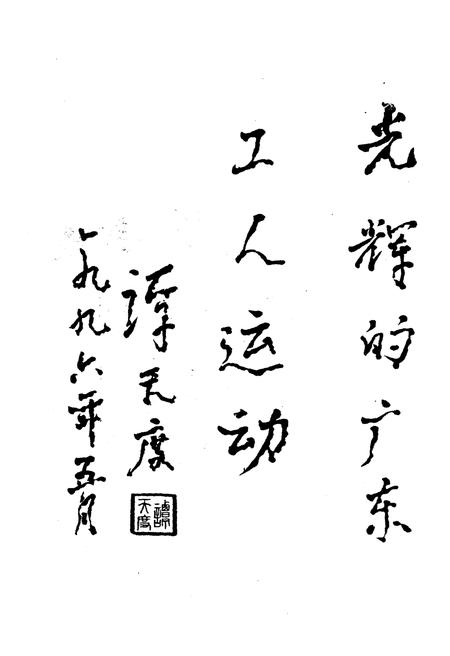 光辉的广东
工人运动
谭天度
一九九六年五月
谭天度